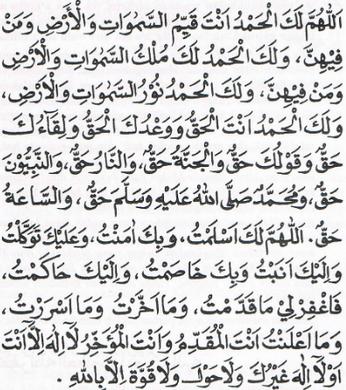 اَللّٰهُمَّ لَكَ الْحَمْدُ اَنْتَ قَيِّمُ السَّمٰوَاتِ وَالْأَرْضِ وَمَنْ
فِيْهِنَّ، وَلَكَ الْحَمْدُ لَكَ مُلْكُ السَّمٰوَاتِ وَالْأَرْضِ
وَمَنْ فِيْهِنَّ، وَلَكَ الْحَمْدُ نُوْرُ السَّمٰوَاتِ وَالْأَرْضِ،
وَلَكَ الْحَمْدُ اَنْتَ الْحَقُّ وَوَعْدُكَ الْحَقُّ وَلِقَاءُكَ
حَقٌّ وَقَوْلُكَ حَقٌّ وَالْجَنَّةُ حَقٌّ، وَالنَّارُ حَقٌّ، وَالنَّبِيُّوْنَ
حَقٌّ، وَمُحَمَّدٌ صَلَّى اللهُ عَلَيْهِ وَسَلَّمَ حَقٌّ، وَالسَّاعَةُ
حَقٌّ. اَللّٰهُمَّ لَكَ اَسْلَمْتُ، وَبِكَ اٰمَنْتُ، وَعَلَيْكَ تَوَكَّلْتُ
وَاِلَيْكَ اَنَبْتُ وَبِكَ خَاصَمْتُ، وَاِلَيْكَ حَاكَمْتُ،
فَاغْفِرْلِيْ مَاقَدَّمْتُ، وَمَا اَخَّرْتُ وَمَا اَسْرَرْتُ،
وَمَا اَعْلَنْتُ اَنْتَ الْمُقَدِّمُ وَاَنْتَ الْمُؤَخِّرُ لَا اِلٰهَ اِلَّا اَنْتَ
اَوْلَا اِلٰهَ غَيْرُكَ وَلَا حَوْلَ وَلَا قُوَّةَ اِلَّا بِاللهِ.